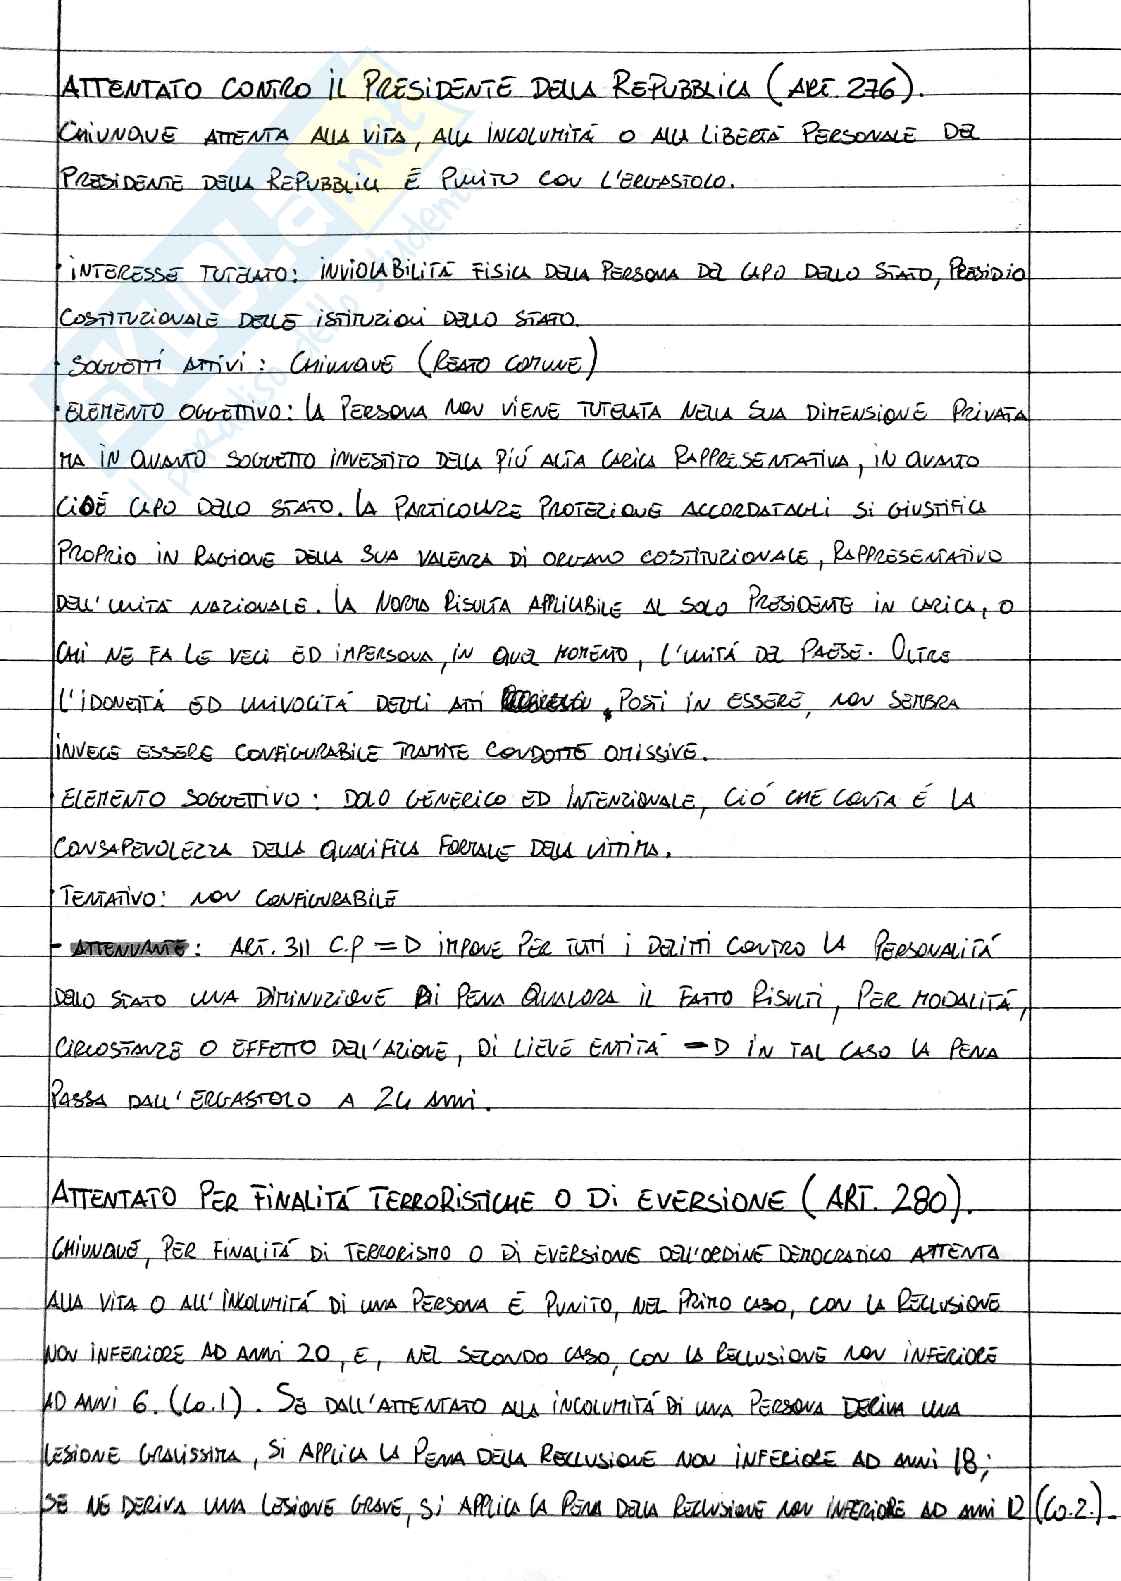 ATTENTATO CONTRO IL PRESIDENTE DELLA REPUBBLICA (ART. 276).
CHIUNQUE ATTENTA ALLA VITA, ALLA INCOLUMITÁ O ALLA LIBERTÁ PERSONALE DEL
PRESIDENTE DELLA REPUBBLICA É PUNITO CON L'ERGASTOLO.
· INTERESSE TUTELATO: INVIOLABILITÁ FISICA DELLA PERSONA DEL CAPO DELLO STATO, PRESIDIO
COSTITUZIONALE DELLE ISTITUZIONI DELLO STATO.
· SOGGETTI ATTIVI: CHIUNQUE (REATO COMUNE)
· ELEMENTO OGGETTIVO: LA PERSONA NON VIENE TUTELATA NELLA SUA DIMENSIONE PRIVATA
MA IN QUANTO SOGGETTO INVESTITO DELLA PIÚ ALTA CARICA RAPPRESENTATIVA, IN QUANTO
CIOÉ CAPO DELLO STATO. LA PARTICOLARE PROTEZIONE ACCORDATAGLI SI GIUSTIFICA
PROPRIO IN RAGIONE DELLA SUA VALENZA DI ORGANO COSTITUZIONALE, RAPPRESENTATIVO
DELL'UNITÁ NAZIONALE. LA NORMA RISULTA APPLICABILE AL SOLO PRESIDENTE IN CARICA, O
CHI NE FA LE VECI ED IMPERSONA, IN QUEL MOMENTO, L'UNITÁ DEL PAESE. OLTRE
L'IDONEITÁ ED UNIVOCITÁ DEGLI ATTI POSTI IN ESSERE, NON SEMBRA
INVECE ESSERE CONFIGURABILE TRAMITE CONDOTTE OMISSIVE.
· ELEMENTO SOGGETTIVO: DOLO GENERICO ED INTENZIONALE, CIÓ CHE CONTA É LA
CONSAPEVOLEZZA DELLA QUALIFICA FORMALE DELLA VITTIMA.
· TENTATIVO: NON CONFIGURABILE
- ATTENUANTE: ART. 311 C.P =D IMPONE PER TUTTI I DELITTI CONTRO LA PERSONALITÁ
DELLO STATO UNA DIMINUZIONE DI PENA QUALORA IL FATTO RISULTI, PER MODALITÁ,
CIRCOSTANZE O EFFETTO DELL'AZIONE, DI LIEVE ENTITÁ -D IN TAL CASO LA PENA
PASSA DALL'ERGASTOLO A 24 ANNI.
ATTENTATO PER FINALITÁ TERRORISTICHE O DI EVERSIONE (ART. 280).
CHIUNQUE, PER FINALITÁ DI TERRORISMO O DI EVERSIONE DELL'ORDINE DEMOCRATICO ATTENTA
ALLA VITA O ALL'INCOLUMITÁ DI UNA PERSONA É PUNITO, NEL PRIMO CASO, CON LA RECLUSIONE
NON INFERIORE AD ANNI 20, E, NEL SECONDO CASO, CON LA RECLUSIONE NON INFERIORE
AD ANNI 6. (CO.1). SE DALL'ATTENTATO ALLA INCOLUMITÁ DI UNA PERSONA DERIVA UNA
LESIONE GRAVISSIMA, SI APPLICA LA PENA DELLA RECLUSIONE NON INFERIORE AD ANNI 18;
SE NE DERIVA UNA LESIONE GRAVE, SI APPLICA LA PENA DELLA RECLUSIONE NON INFERIORE AD ANNI 12 (CO.2.).
SKUOLA.net
il paradiso dello studente